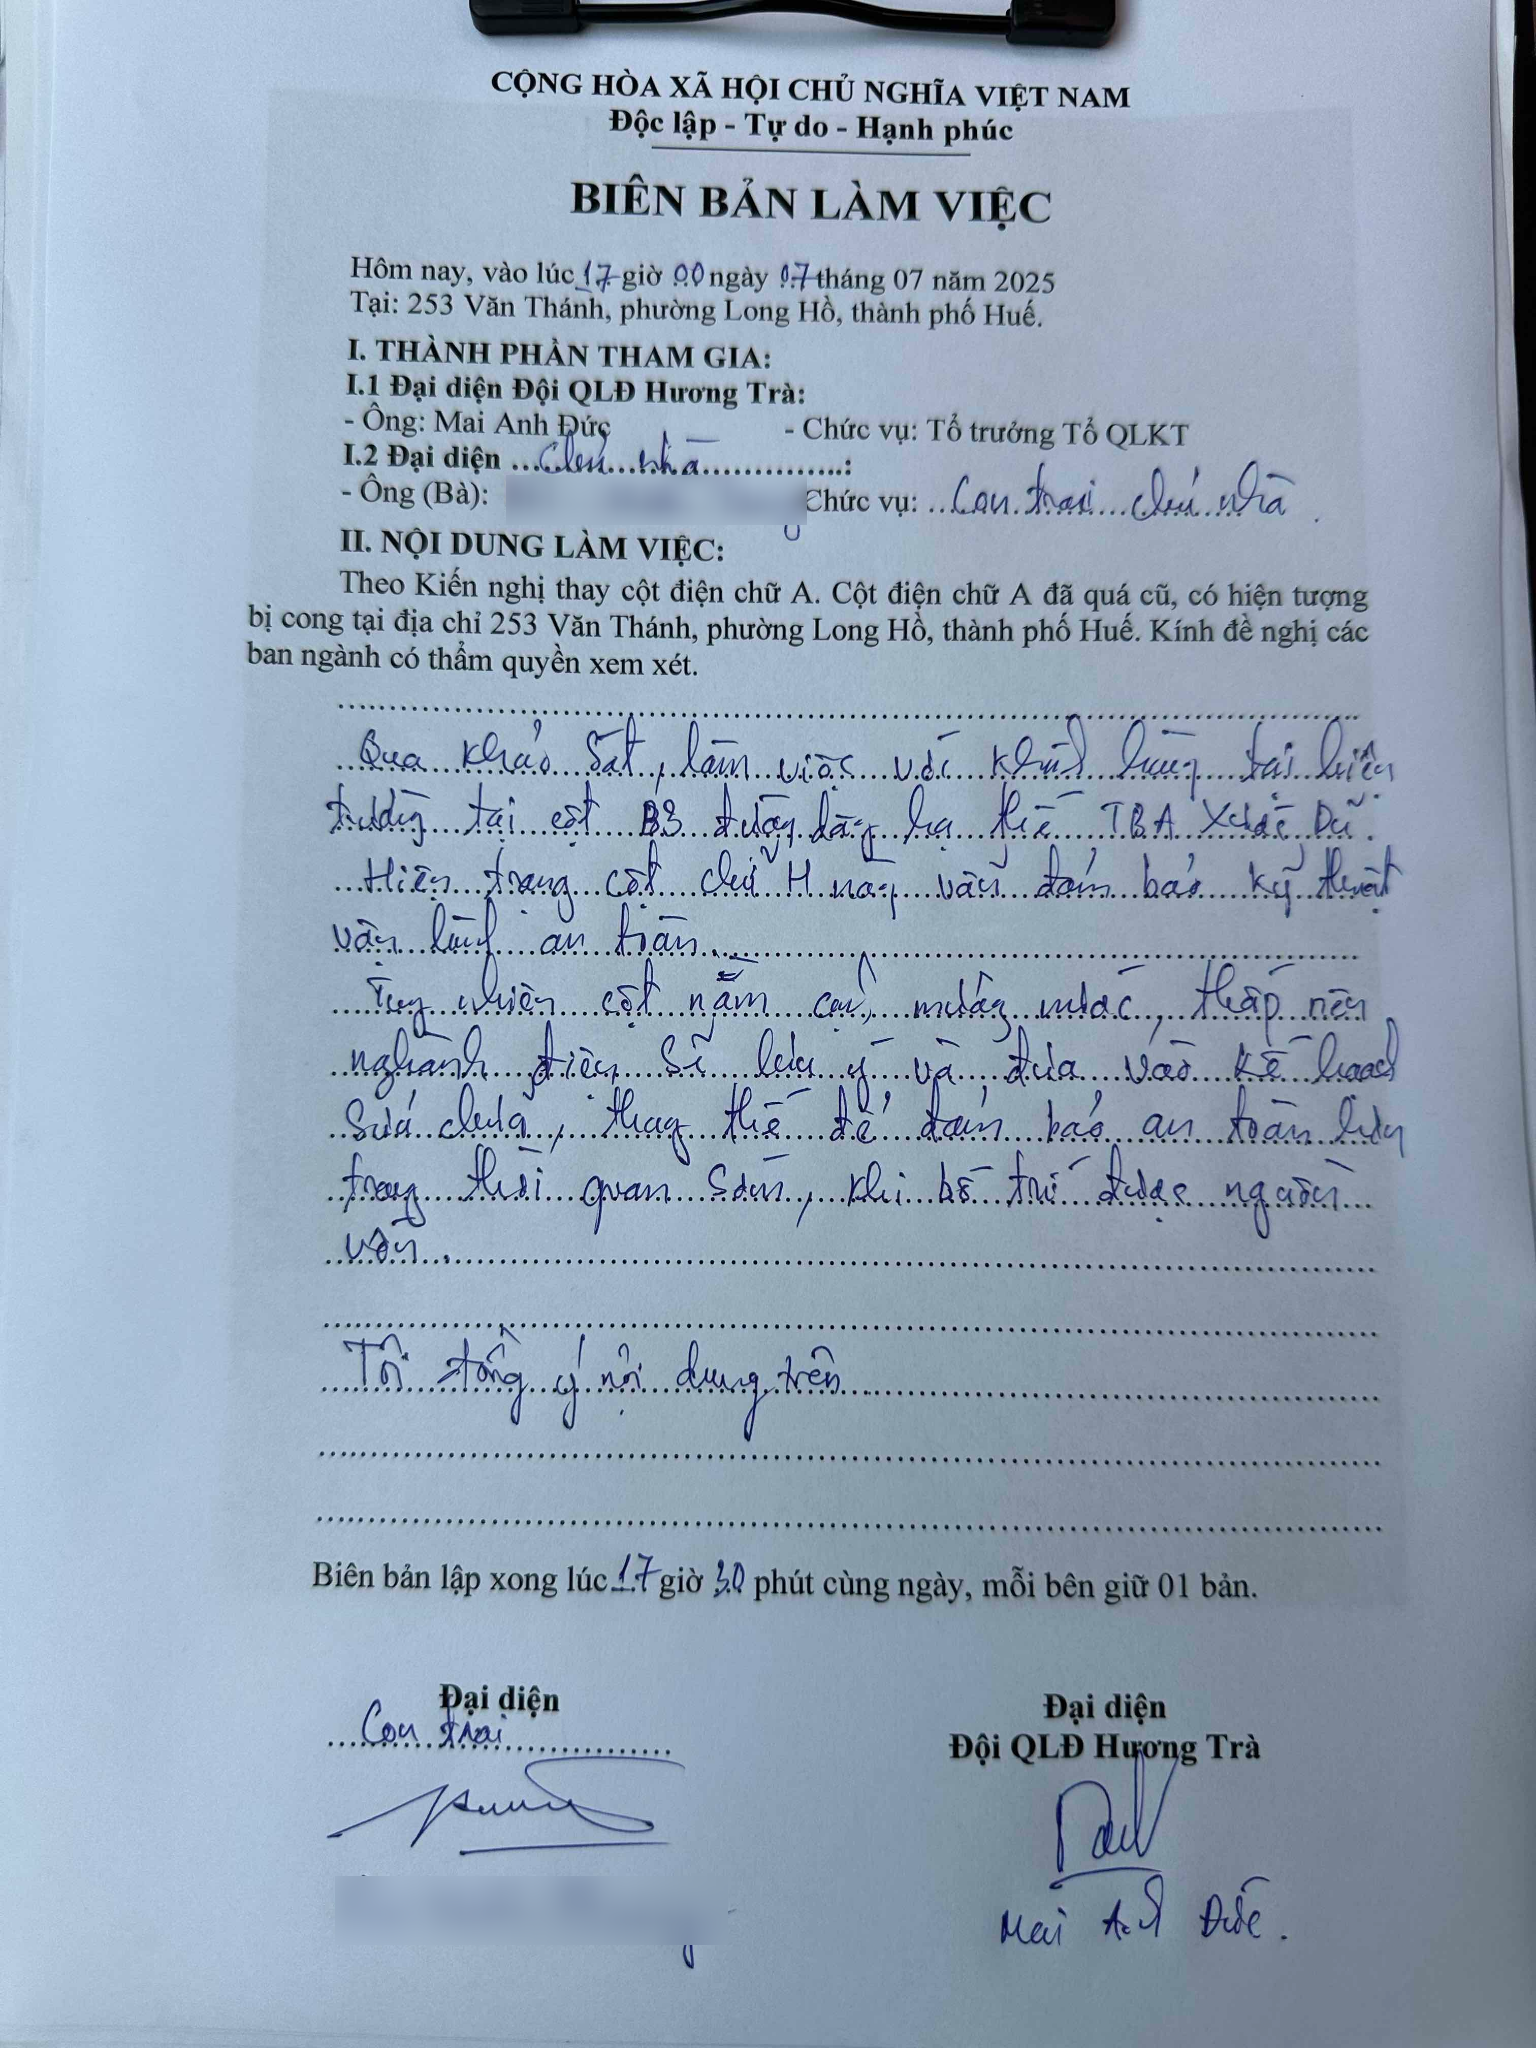 CỘNG HÒA XÃ HỘI CHỦ NGHĨA VIỆT NAM
Độc lập - Tự do - Hạnh phúc
BIÊN BẢN LÀM VIỆC
Hôm nay, vào lúc 17 giờ 00 ngày 07 tháng 07 năm 2025
Tại: 253 Văn Thánh, phường Long Hồ, thành phố Huế.
I. THÀNH PHẦN THAM GIA:
I.1 Đại diện Đội QLĐ Hương Trà:
- Ông: Mai Anh Đức - Chức vụ: Tổ trưởng Tổ QLKT
I.2 Đại diện ...chủ nhà...:
- Ông (Bà): Chức vụ: ...Con trai chủ nhà.
II. NỘI DUNG LÀM VIỆC:
Theo Kiến nghị thay cột điện chữ A. Cột điện chữ A đã quá cũ, có hiện tượng
bị cong tại địa chỉ 253 Văn Thánh, phường Long Hồ, thành phố Huế. Kính đề nghị các
ban ngành có thẩm quyền xem xét.
Qua khảo sát, làm việc với khách hàng tại hiện
trường tại cột B3 đường dây hạ thế TBA Xước Dũ.
Hiện trạng cột chữ H này vẫn đảm bảo kỹ thuật
vận hành an toàn.
Tuy nhiên cột nằm cạnh mương nước, thấp nên
nghành điện sẽ lưu ý và đưa vào kế hoạch
sửa chữa, thay thế để đảm bảo an toàn hơn
trong thời quan sớm, khi bố trí được nguồn
vốn.
Tôi đồng ý nội dung trên
Biên bản lập xong lúc 17 giờ 30 phút cùng ngày, mỗi bên giữ 01 bản.
Đại diện
Con trai
Đại diện
Đội QLĐ Hương Trà
Mai Anh Đức.